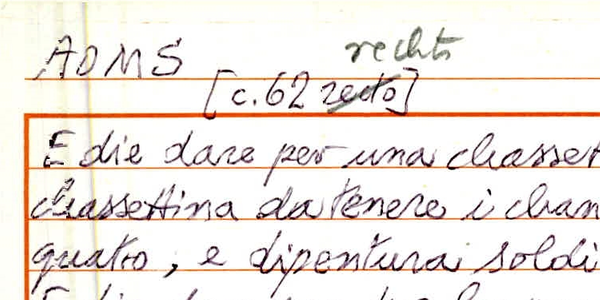 ADMS rechts
[c. 62 recto]
E die dare per una chasset
chassettina da tenere i chan
quatro, e dipentura soldi
E die